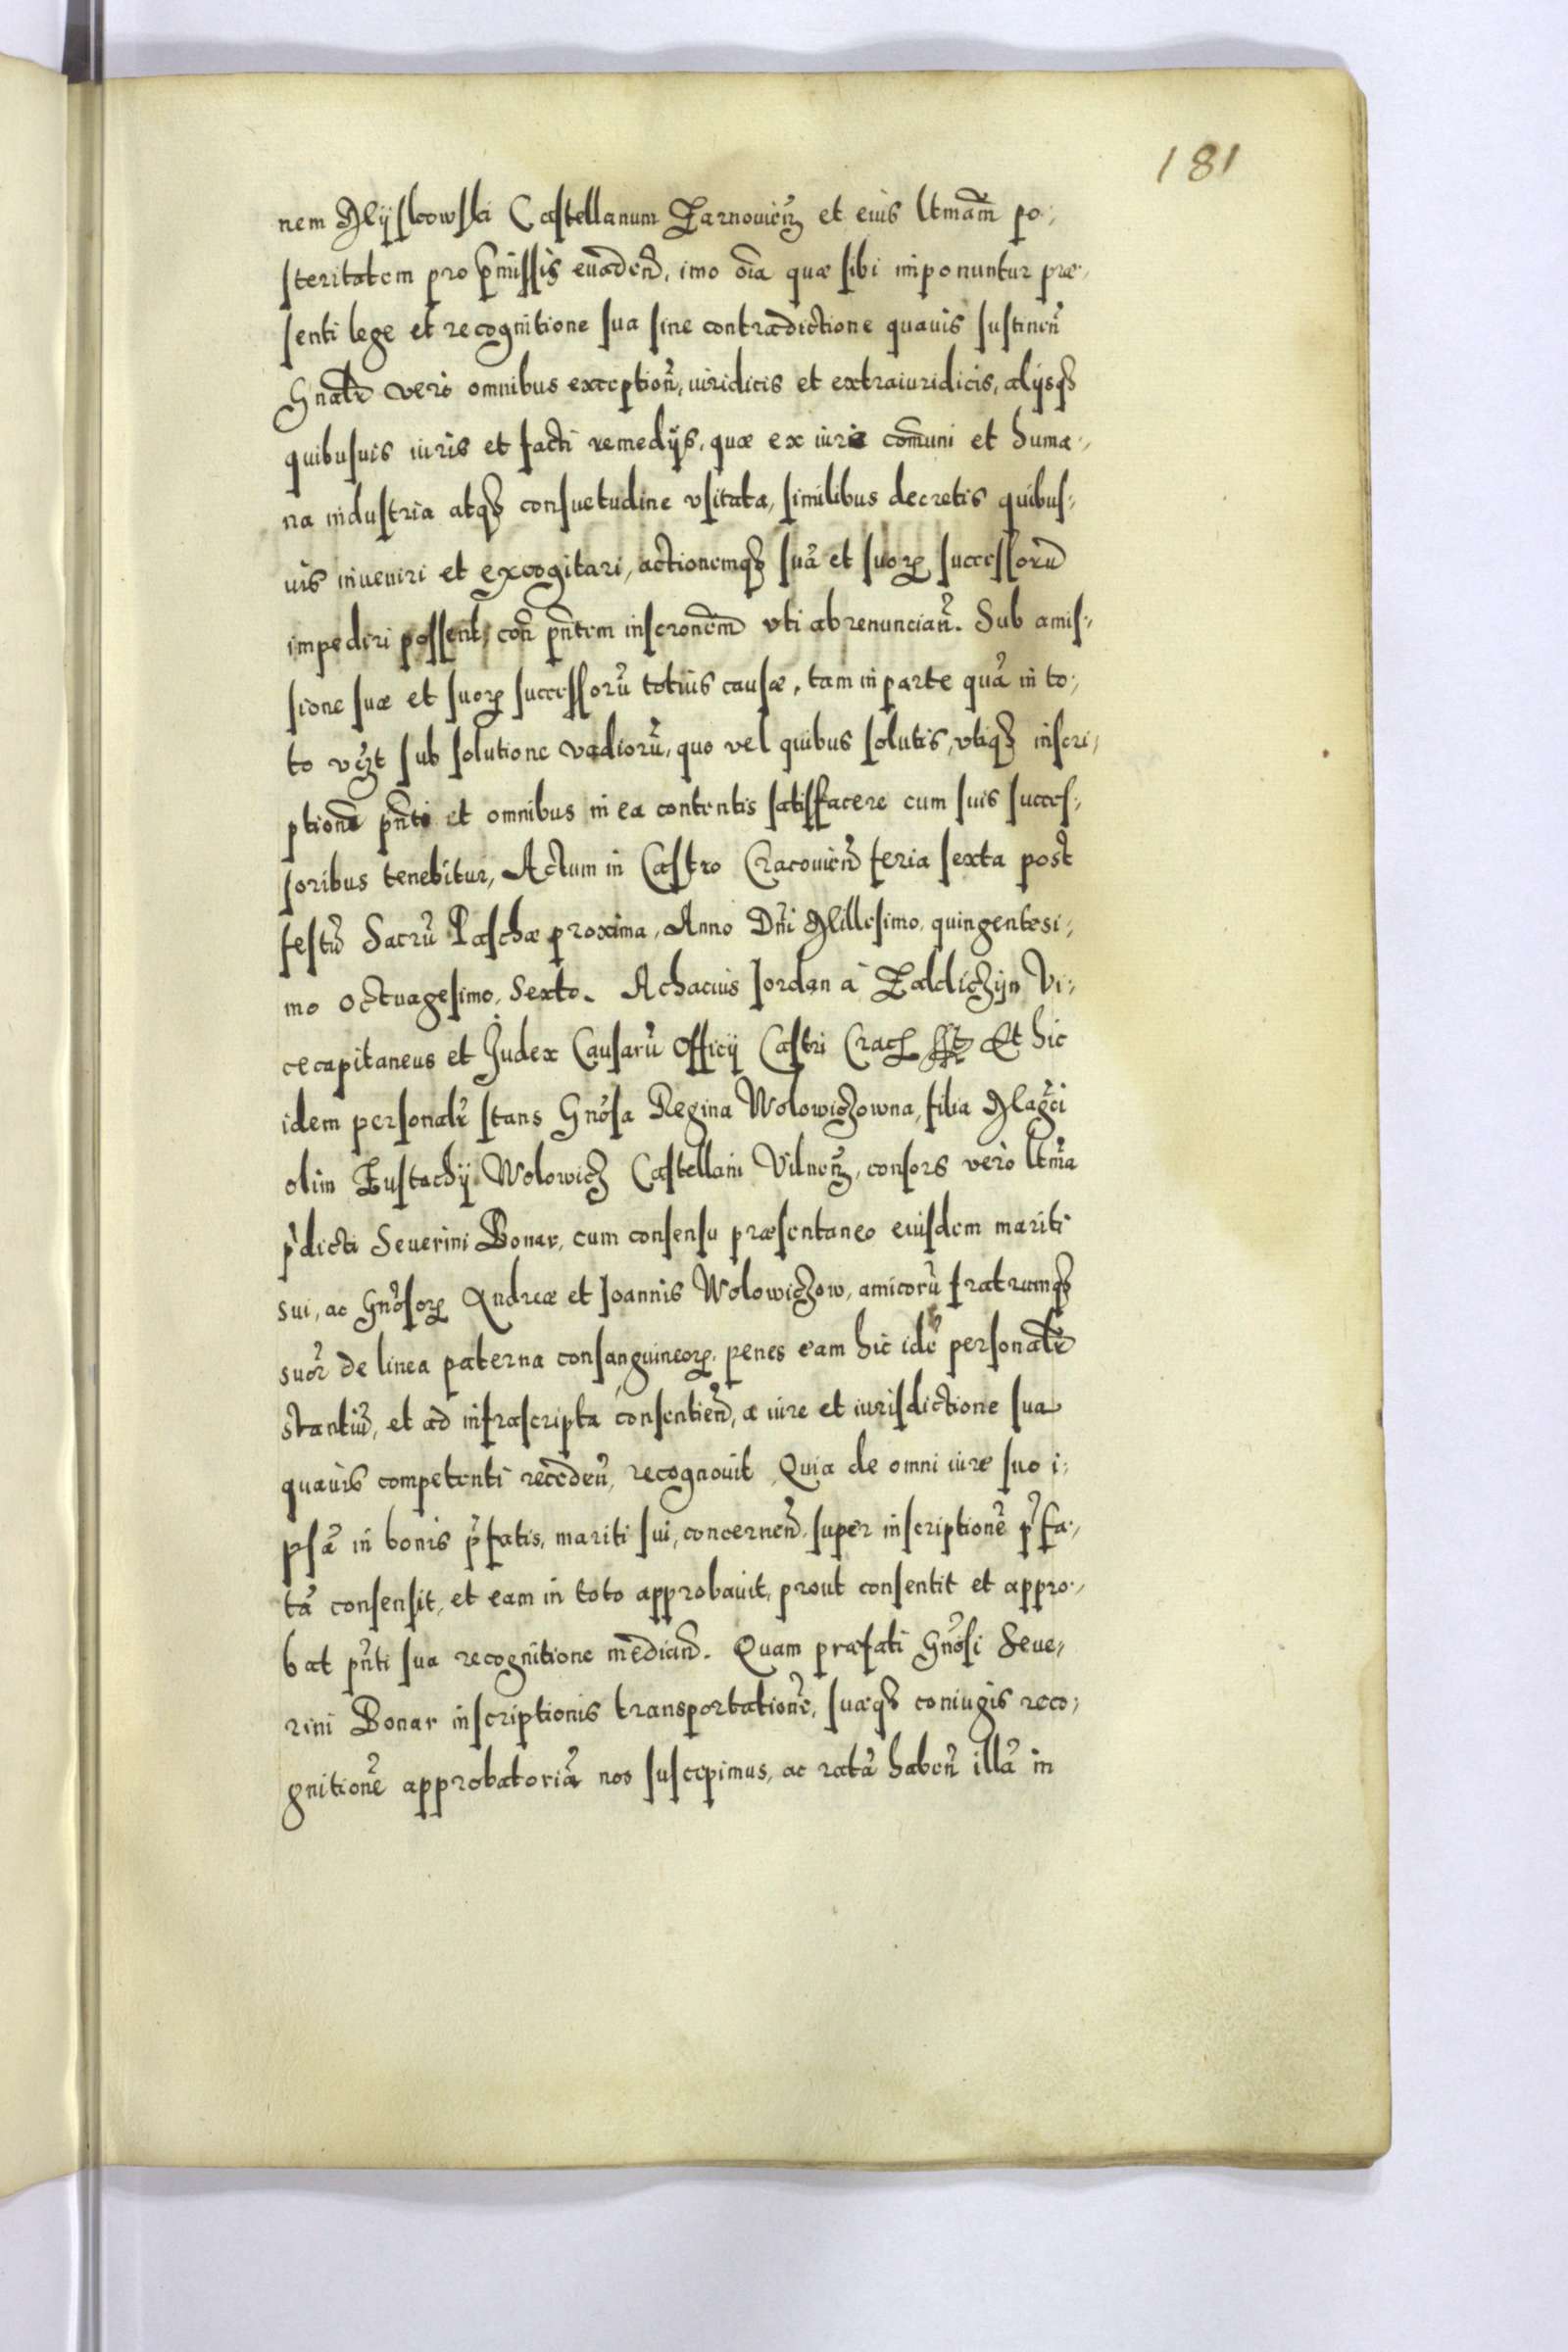 181
nem Mÿskowski Castellanum Zarnouień et eius ltmãm po-
steritatem pro p̃missis euãdeñ, imo oĩa quæ sibi imponuntur præ-
senti lege et recognitione sua sine contradictione quauis sustineñ
Gñalr vero omnibus exceptioñ, iuridicis et extraiuridicis, alÿsq3
quibusuis iuris et facti remedÿs, quæ ex iure com̃uni et huma-
na industria atq3 consuetudine vsitata, similibus decretis quibus-
uis inueniri et excogitari, actionemq3 suã et suorꝝ successorũ
impediri possent, coñ pñtem inscronẽm vti abrenunciañ. Sub amis-
sione suæ et suorꝝ successorũ totius causæ, tam in parte quã in to-
to vezt sub solutione vadiorũ, quo vel quibus solutis, vtiq3 inscri-
ptione pñti et omnibus in ea contentis satisfacere cum suis succes-
soribus tenebitur, Actum in Castro Cracouień feria sexta post
festũ Sacrũ Paschæ proxima, Anno Dñi Millesimo, quingentesi-
mo octuagesimo, Sexto. Achacius Jordan à Zaklicżyn Vi-
cecapitaneus et Judex Causarũ Officÿ Castri Crac̃ sst Et hic
idem personalr stans Gñosa Regina Wolowicżowna, filia Mag̃ci
olim Eustachÿ Wolowicż Castellani Vilneñ, consors vero ltm̃a
p̃dicti Seuerini Bonar, cum consensu præsentaneo eiusdem mariti
sui, ac Gñosorꝝ Andreæ et Joannis Wolowicżow, amicorũ fratrumq3
suor̃ de linea paterna consanguineorꝝ, penes eam hic idẽ personalr
stantiũ, et ad infrascripta consentieñ, a iure et iurisdictione sua
quauis competenti recedeñ, recognouit, Quia de omni iure suo i-
psã in bonis p̃fatis, mariti sui, concerneñ, super inscriptionẽ p̃fa-
tã consensit, et eam in toto approbauit, prout consentit et appro-
bat pñti sua recognitione mediañ. Quam præfati Gñosi Seue-
rini Bonar inscriptionis transportationẽ, suæq3 coniugis reco-
gnitionẽ approbatoriã nos suscepimus, ac ratã habeñ illã in